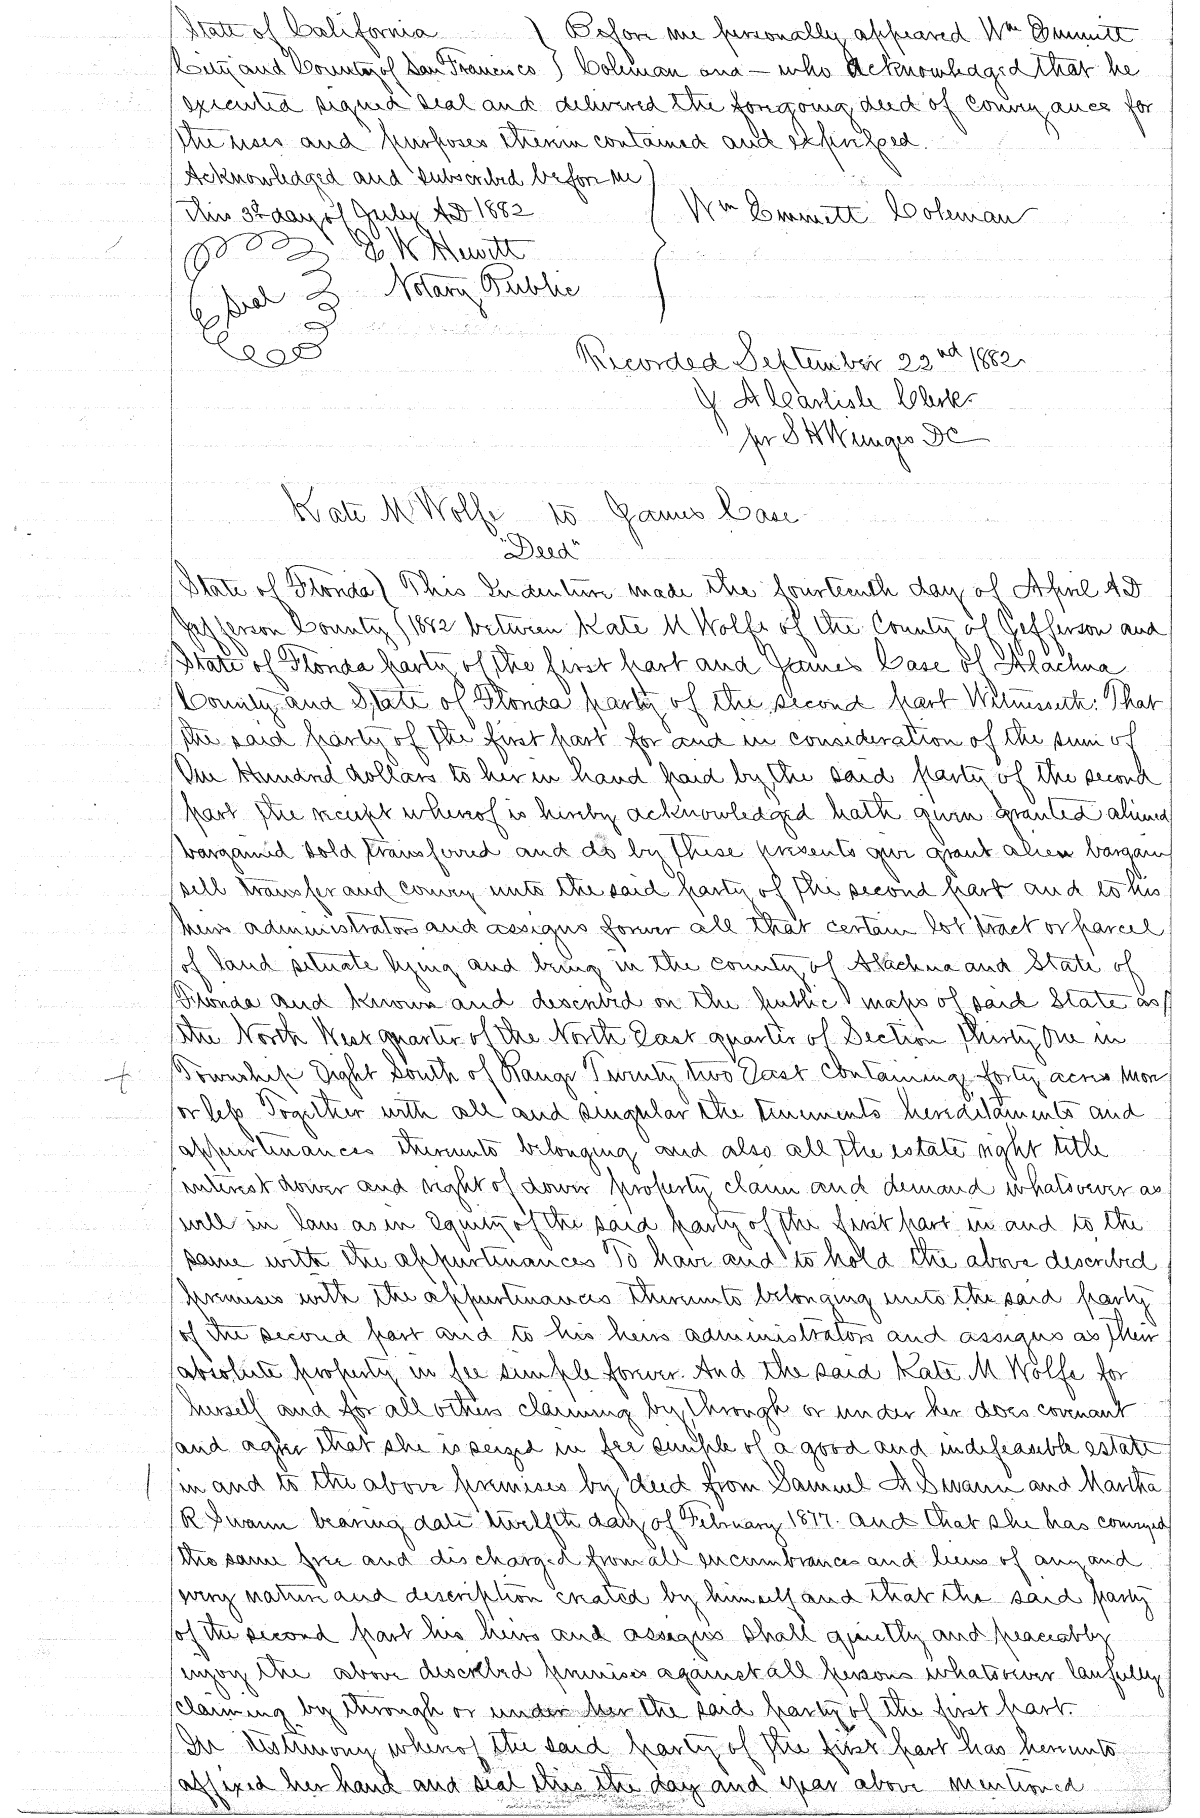 State of California } Before me personally appeared Wm Emmitt
City and County of San Francisco } Coleman and — who Acknowledged that he
executed signed seal and delivered the foregoing deed of conveyance for
the uses and purposes therein contained and expressed.
Acknowledged and subscribed before me
this 3d day of July AD 1882
Wm Emmett Coleman
E K Hewitt
Seal Notary Public
Recorded September 22nd 1882
J A Carlisle Clerk
pr S H Wienges DC
Kate M Wolfe to James Case
"Deed"
State of Florida ) This Indenture made the fourteenth day of April AD
Jefferson County ) 1882 between Kate M Wolfe of the County of Jefferson and
State of Florida party of the first part and James Case of Alachua
County and State of Florida party of the second part Witnesseth: That
the said party of the first part for and in consideration of the sum of
One Hundred dollars to her in hand paid by the said party of the second
part the receipt whereof is hereby acknowledged hath given granted aliened
bargained sold transferred and do by these presents give grant alien bargain
sell transfer and convey unto the said party of the second part and to his
heirs administrators and assigns forever all that certain lot tract or parcel
of land situate lying and being in the county of Alachua and State of
Florida and known and described on the public maps of said State as
the North West quarter of the North East quarter of Section Thirty One in
Township Eight South of Range Twenty two East containing forty acres more
or less Together with all and singular the tenements hereditaments and
appurtenances thereunto belonging and also all the estate right title
interest dower and right of dower property claim and demand whatsoever as
well in law as in Equity of the said party of the first part in and to the
same with the appurtenances To have and to hold the above described
premises with the appurtenances thereunto belonging unto the said party
of the second part and to his heirs administrators and assigns as their
absolute property in fee simple forever. And the said Kate M Wolfe for
herself and for all others claiming by through or under her does covenant
and agree that she is seized in fee simple of a good and indefeasible estate
in and to the above premises by deed from Samuel A Swann and Martha
R Swann bearing date twelfth day of February 1877. and that she has conveyed
the same free and discharged from all encumbrances and liens of any and
every nature and description created by himself and that the said party
of the second part his heirs and assigns shall quietly and peaceably
enjoy the above described premises against all persons whatsoever lawfully
claiming by through or under her the said party of the first part.
In testimony whereof the said party of the first part has hereunto
affixed her hand and seal this the day and year above mentioned